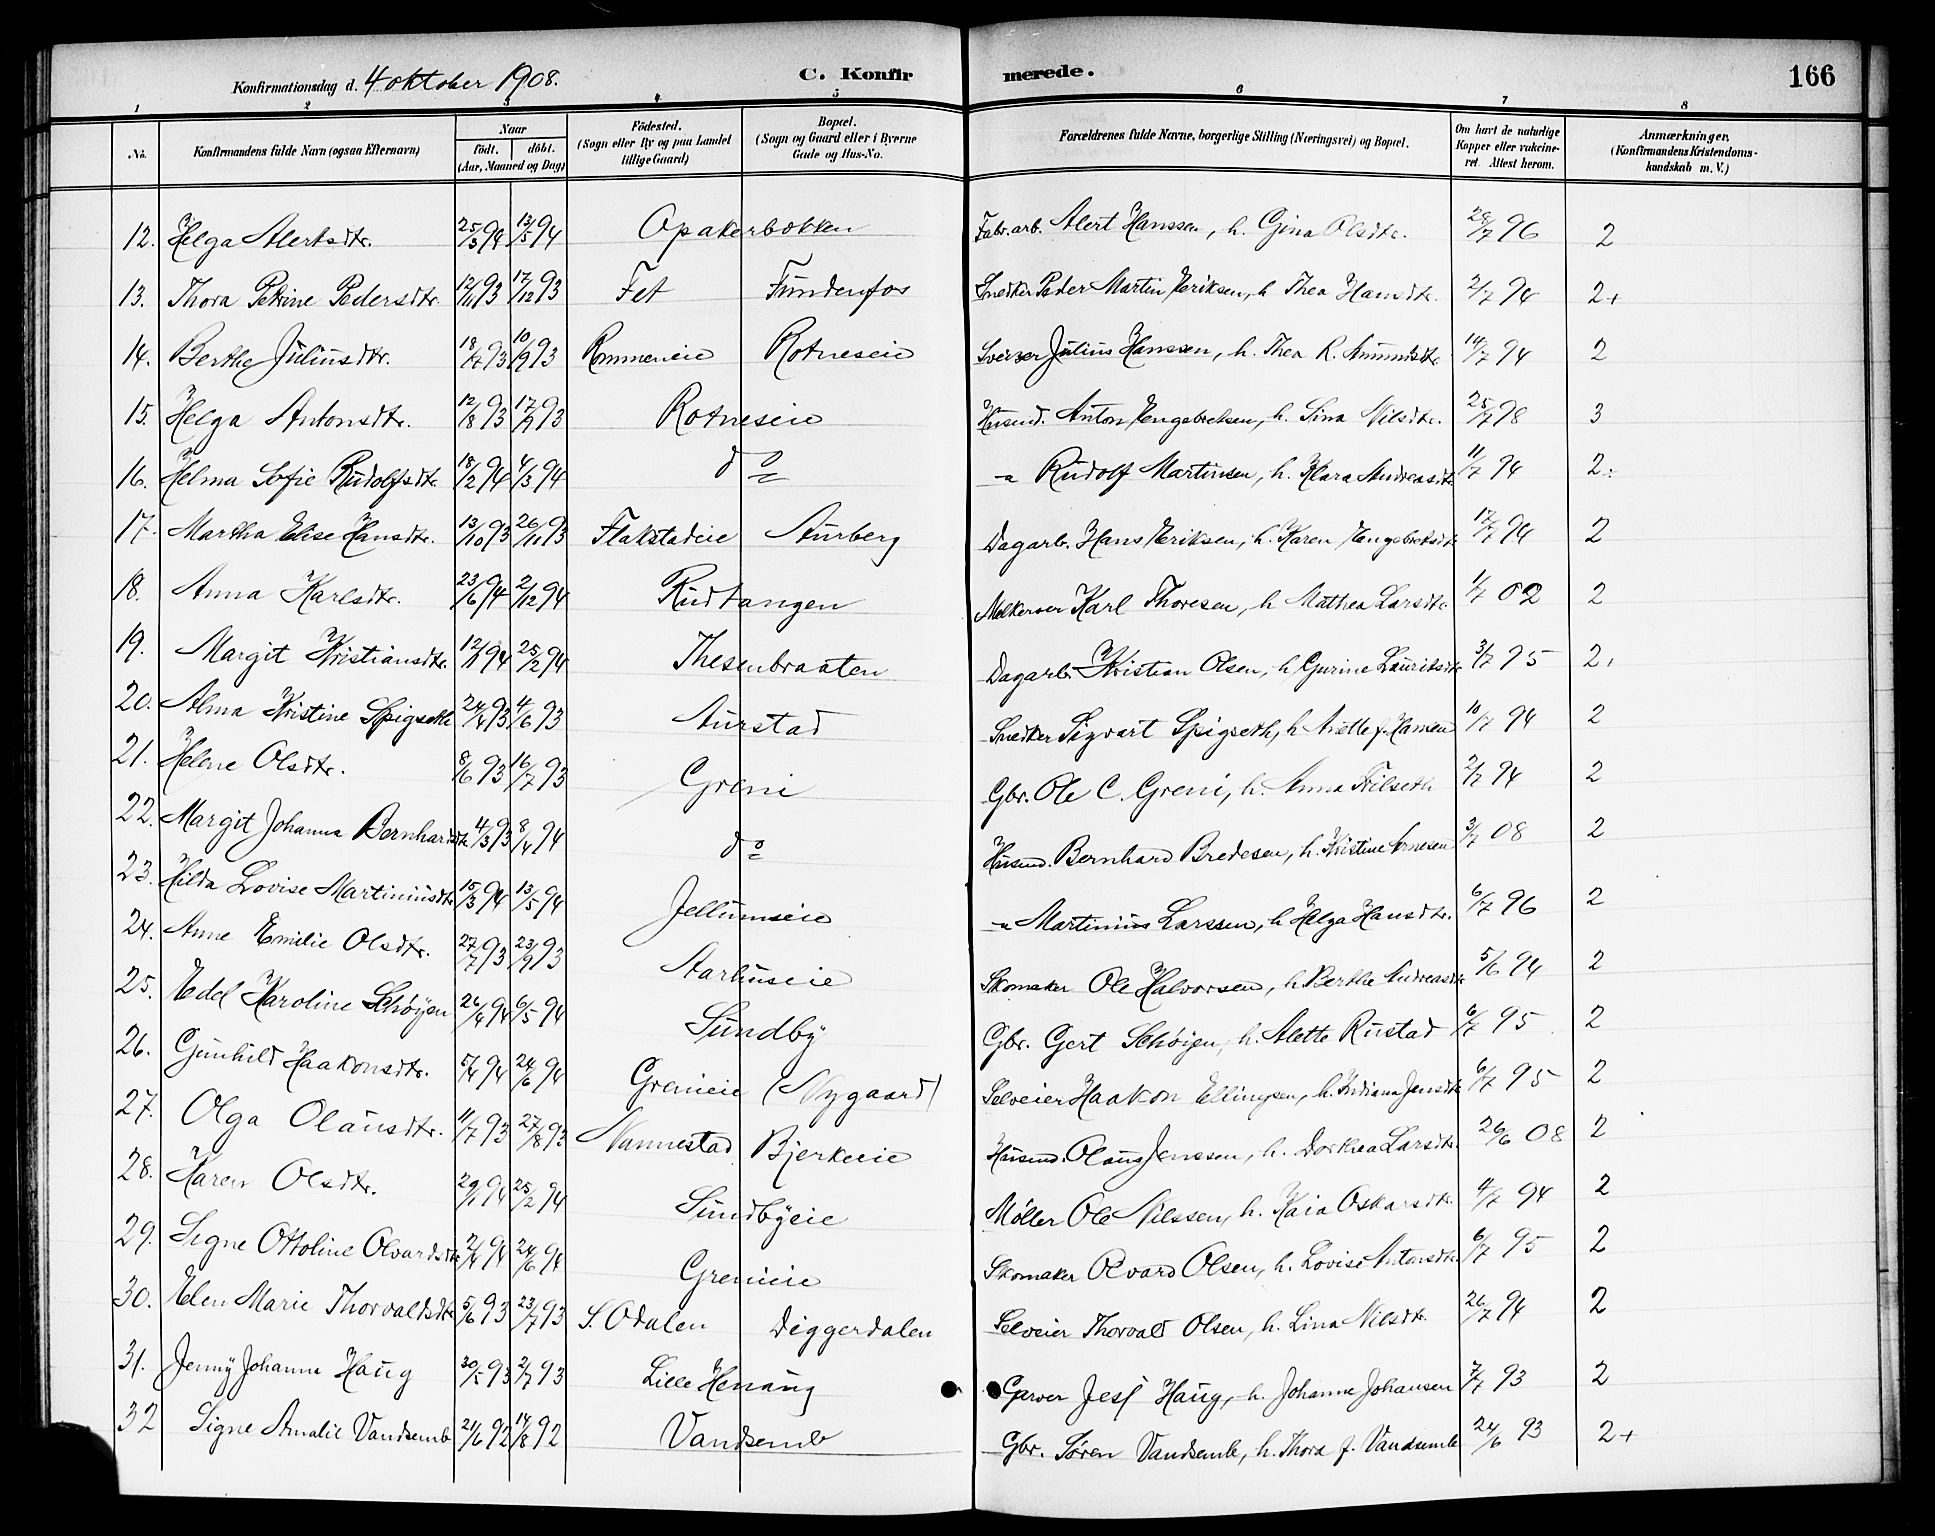 Konfirmationsdag d. 4 oktober 1908. C. Konfirmerede. 166
1 2 3 4 5 6 7 8
No. Konfirmandens fulde Navn (ogsaa Efternavn) Naar födt. döbt. (Aar, Maaned og Dag) Födested. (Sogn eller By og paa Landet tillige Gaard) Bopæl. (Sogn og Gaard eller i Byerne Gade og Hus-No. Forældrenes fulde Navne, borgerlige Stilling (Næringsvei) og Bopæl. Om havt de naturlige Kopper eller vaccineret. Attest herom. Anmærkninger, (Konfirmandens Kristendomskundskab m. V.)
12. Helga Alertsdtr. 25/3 94 13/5 94 Opakerbakken Fabr.arb. Alert Hanssen, h. Gina Olsdtr. 28/7 96 2
13. Thora Petrine Pedersdtr. 12/11 93 17/12 93 Fet Fundenfos Snedker Peder Martin Eriksen, h. Thea Hansdtr. 2/7 94 2+
14. Berthe Juliusdtr. 18/7 93 10/9 93 Rommeneie Rotneseie Sveiser Julius Hanssen, h. Thea R. Amundsdtr. 14/7 94 2
15. Helga Antonsdtr. 12/8 93 17/9 93 Rotneseie Husmd. Anton Engebretsen, h. Lina Nilsdtr. 25/7 98 3
16. Helma Sofie Rudolfsdtr. 18/2 94 4/3 94 do -"- Rudolf Martinsen, h. Klara Andreasdtr. 11/7 94 2
17. Martha Elise Hansdtr. 13/10 93 26/11 93 Flakstadeie Aurberg Dagarb. Hans Eriksen, h. Karen Engebretsdtr 17/7 94 2
18. Anna Karlsdtr. 23/6 94 2/12 94 Rudtangen Karl Thoresen, h. Mathea Larsdtr. 1/7 02 2
19. Margit Kristiansdtr. 12/1 94 25/2 94 Thesenbraaten Dagarb. Kristian Olsen, h. Gurine Lauritsdtr 3/7 95 2+
20. Alma Kristine Spigseth 24/4 93 4/6 93 Aurstad Snedker Sigvart Spigseth, h. Anette f. Hansen 10/7 94 2
21. Helene Olsdtr. 8/6 93 16/7 93 Greni Gbr. Ole C. Greni, h. Anna Trilseth 2/7 94 2
22. Margit Johanna Bernhardsdtr 4/3 93 8/4 94 do Husmd. Bernhard Bredesen, h. Kristine Arnesen 3/7 08 2
23. Hilda Lovise Martiniusdtr 15/3 94 13/5 94 Jellumseie -"- Martinius Larssen, h. Helga Hansdtr. 6/7 96 2
24. Anne Emilie Olsdtr. 27/7 93 23/9 93 Aarhuseie Skomaker Ole Halvorsen, h. Berthe Andreasdtr 5/6 94 2
25. Edel Karoline Schöyen 26/4 94 6/5 94 Sundby Gbr. Gert Schöyen, h. Alette Rustad 6/7 95 2
26. Gunhild Haakonsdtr. 5/4 94 24/6 94 Grenieie (Nygaard) Selveier Haakon Ellingsen, h. Indiana Jensdtr 6/7 95 2
27. Olga Olausdtr. 11/7 93 27/8 93 Nannestad Bjerkeeie Husmd. Olaus Jenssen, h. Dorthea Larsdtr. 26/6 08 2
28. Karen Olsdtr. 29/1 94 25/2 94 Sundbyeie Möller Ole Nilssen, h. Kaia Oskarsdtr. 4/7 94 2
29. Signe Ottoline Olvardsdtr 2/4 94 24/6 94 Grenieie Skomaker Olvard Olsen, h. Lovise Antonsdtr. 6/7 95 2
30. Elen Marie Thorvaldsdtr 5/6 93 23/7 93 S. Odalen Diggerdalen Selveier Thorvald Olsen, h. Lina Nilsdtr. 26/7 94 2
31. Jenny Johanne Haug 30/5 93 2/7 93 Lille Henaug Garver Jess Haug, h. Johanne Johansen 7/7 93 2
32 Signe Amalie Vandsemb 21/6 92 14/8 92 Vandsemb Gbr. Sören Vandsemb, h. Thora f. Vandsemb 24/6 93 2+